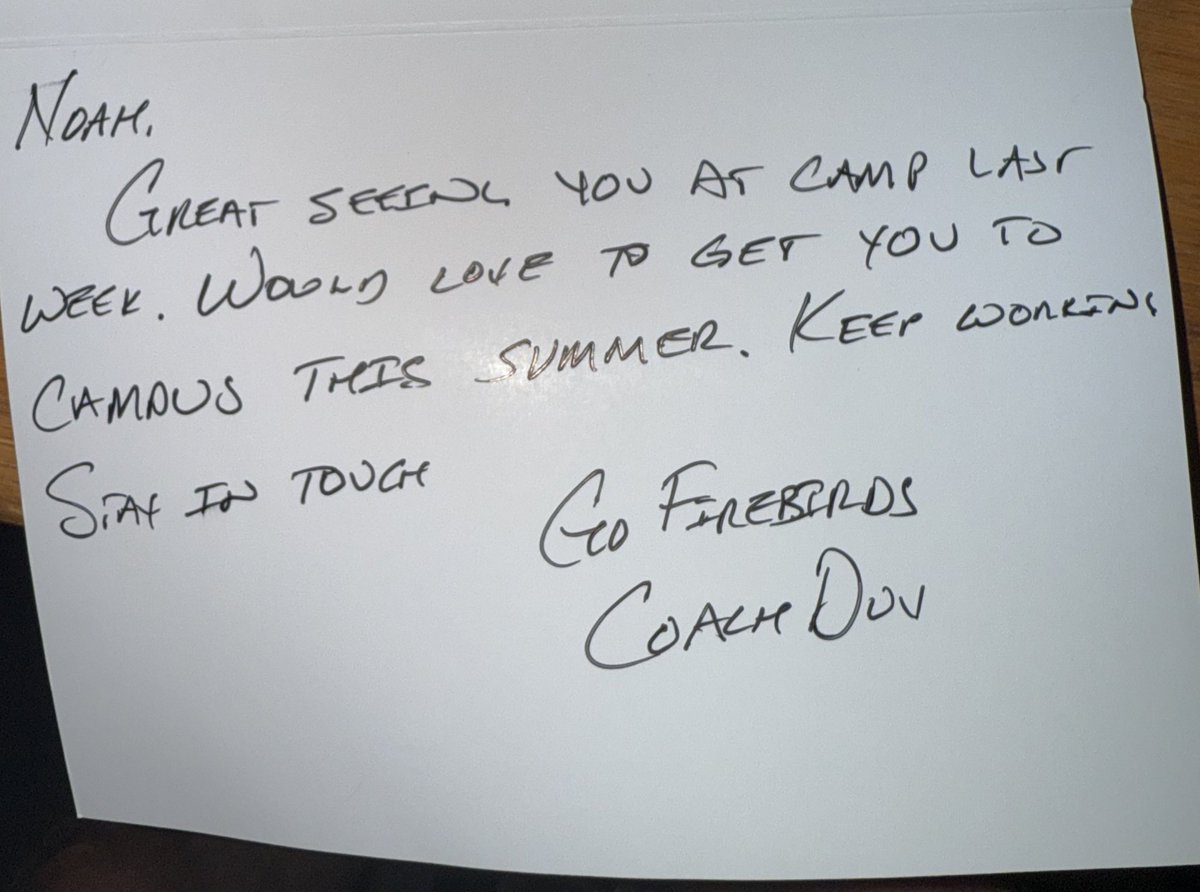 NOAH,
GREAT SEEING YOU AT CAMP LAST
WEEK. WOULD LOVE TO GET YOU TO
CAMPUS THIS SUMMER. KEEP WORKING
STAY IN TOUCH
GO FIREBIRDS
COACH DUV